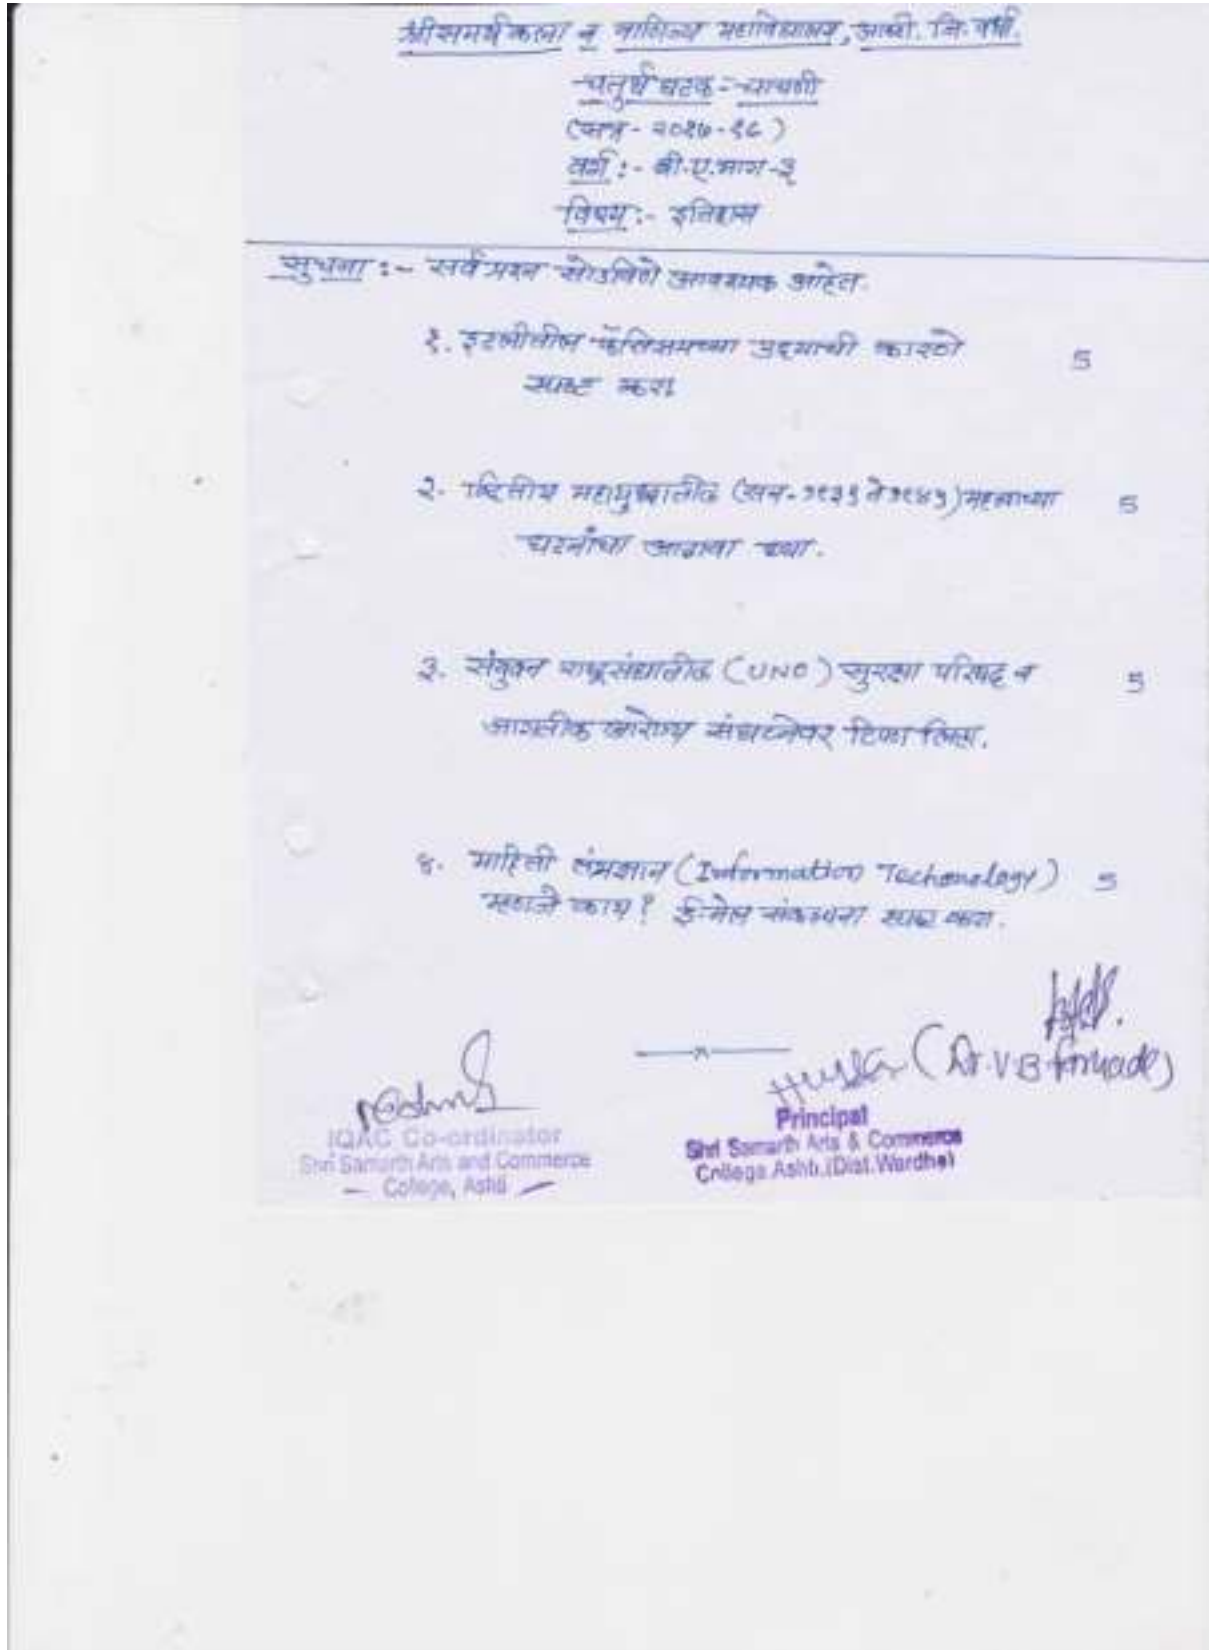 श्री समर्थ कला व वाणिज्य महाविद्यालय, आष्टी. जि. वर्धा.
चतुर्थ घटक - चाचणी
(सत्र - २०१७-१८)
वर्ग :- बी.ए.भाग-३
विषय :- इतिहास
सुचना :- सर्व प्रश्न सोडविणे आवश्यक आहेत.
१. इटलीतील फॅसिझमच्या उदयाची कारणे 5
स्पष्ट करा
२. व्दितीय महायुध्दातील (सन-१९३९ ते १९४५) महत्वाच्या 5
घटनांचा आढावा घ्या.
३. संयुक्त राष्ट्रसंघातील (UNO) सुरक्षा परिषद व 5
जागतीक आरोग्य संघटनेवर टिपा लिहा.
४. माहिती तंत्रज्ञान (Information Techonology) 5
म्हणजे काय? ई-मेल संकल्पना स्पष्ट करा.
(Dr. V.B.
IQAC Co-ordinator
Shri Samarth Arts and Commerce
College, Ashti
Principal
Shri Samarth Arts & Commerce
College Ashti.(Dist.Wardha)